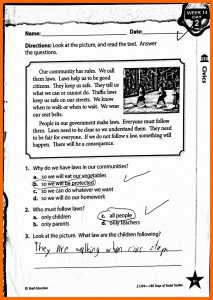 WEEK 14
DAY
2
Name:
Date:
Directions: Look at the picture, and read the text. Answer
the questions.
Civics
Our community has rules. We call
them laws. Laws help us to be good
citizens. They keep us safe. They tell us
what we can or cannot do. Traffic laws
keep us safe on our streets. We know
when to walk or when to wait. We wear
our seat belts.
People in our government make laws. Everyone must follow
them. Laws need to be clear so we understand them. They need
to be fair for everyone. If we do not follow a law, something will
happen. There will be a consequence.
1. Why do we have laws in our communities?
a. so we will eat our vegetables
b. so we will be protected
c. so we can do whatever we want
d. so we will do our homework
2. Who must follow laws?
a. only children
c. all people
b. only parents
d. only teachers
3. Look at the picture. What law are the children following?
They Are walking when cars stop
© Shell Education
180 Days of Social Studies